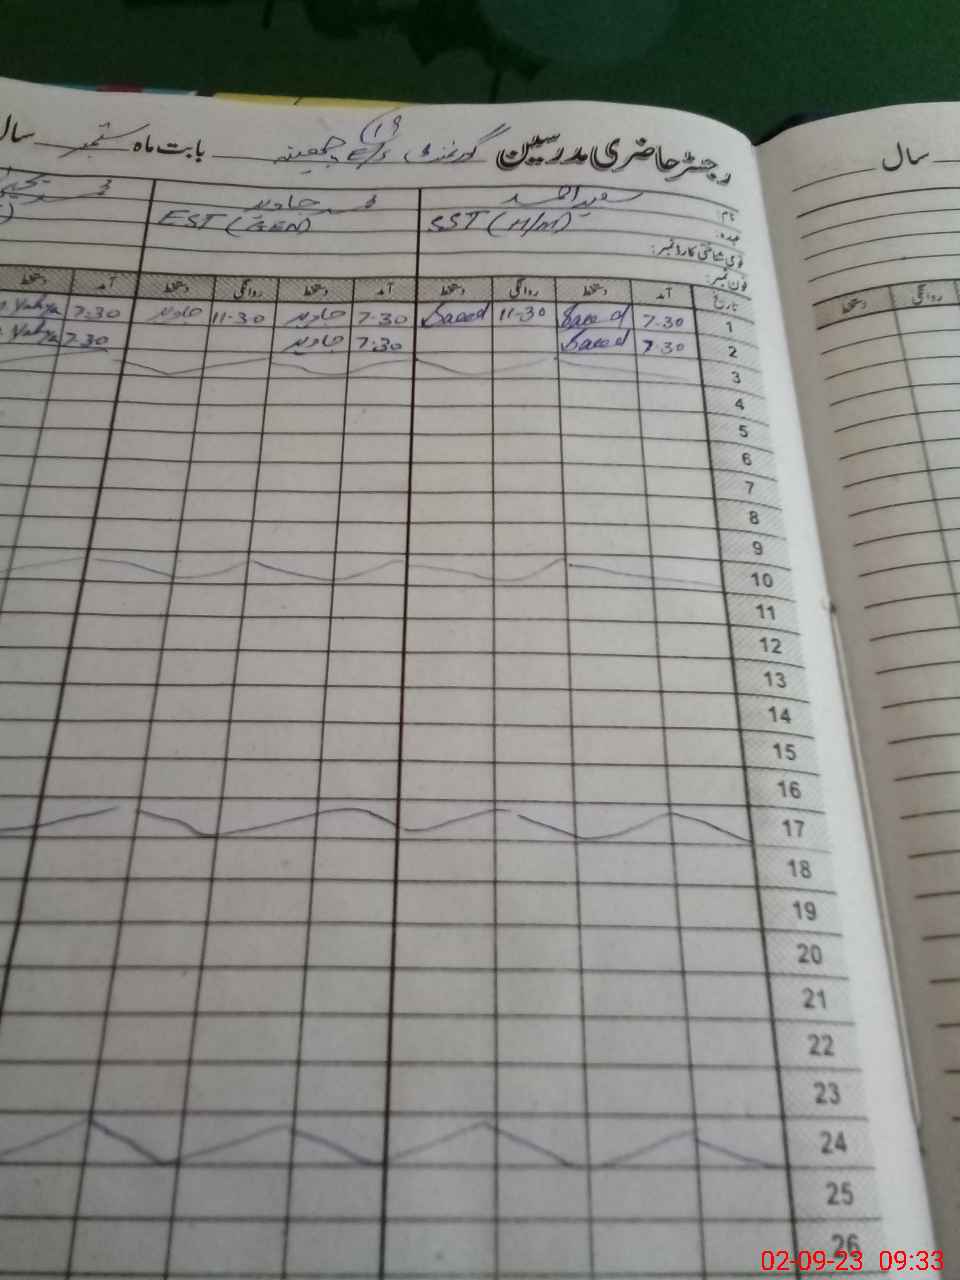 رجسٹر حاضری مدرسین گورنمنٹ بابت ماہ ستمبر سال
سال
نام: سعید احمد محمد جاوید
عہدہ: SST (H/M) EST (GEN)
قومی شناختی کارڈ نمبر:
فون نمبر:
تاریخ آمد دستخط روانگی دستخط آمد دستخط روانگی دستخط آمد دستخط
روانگی دستخط
1 7.30 Saeed 11-30 Saeed 7.30 جاوید 11-30 جاوید 7.30 Yahya
2 7.30 Saeed 7:30 جاوید 7.30 Yahya
3
4
5
6
7
8
9
10
11
12
13
14
15
16
17
18
19
20
21
22
23
24
25
26
02-09-23 09:33